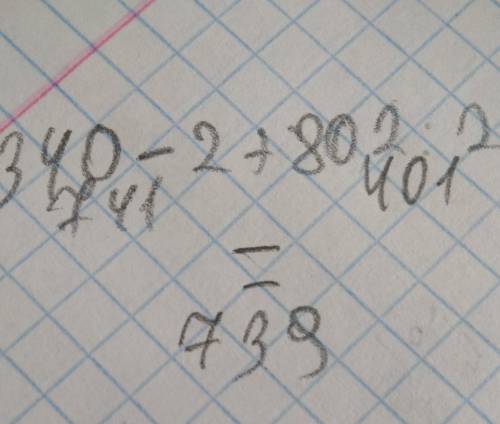 340 - 2 + 802 : 2
741 401
=
739